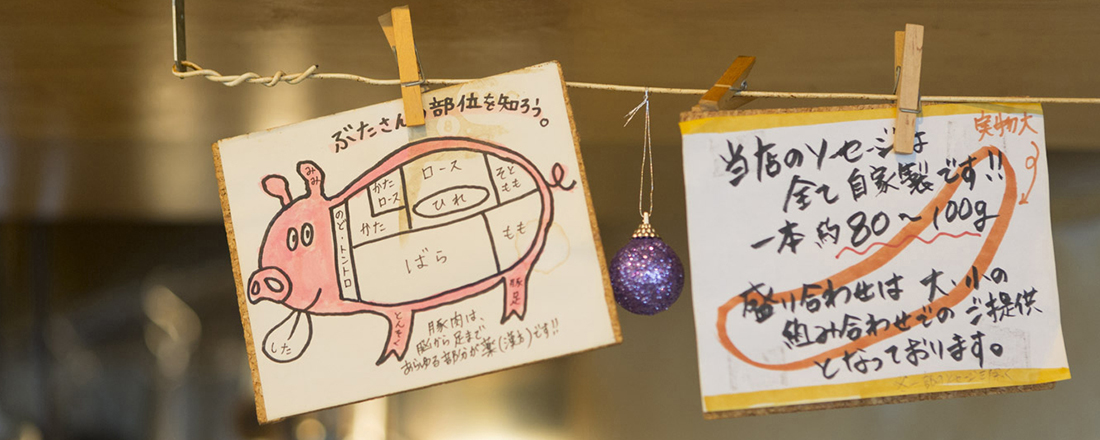 ぶたさんの部位を知ろう。
みみ
かた
ロース
ロース
そと
もも
ひれ
のど・トントロ
かた
ばら
もも
した
とんそく
豚足
豚肉は、
脳から足まで
あらゆる部分が薬(漢方)です!!
実物大
当店のソーセージは
全て自家製です!!
一本 約80〜100g
盛り合わせは 大、小の
組み合わせでのご提供
となっております。